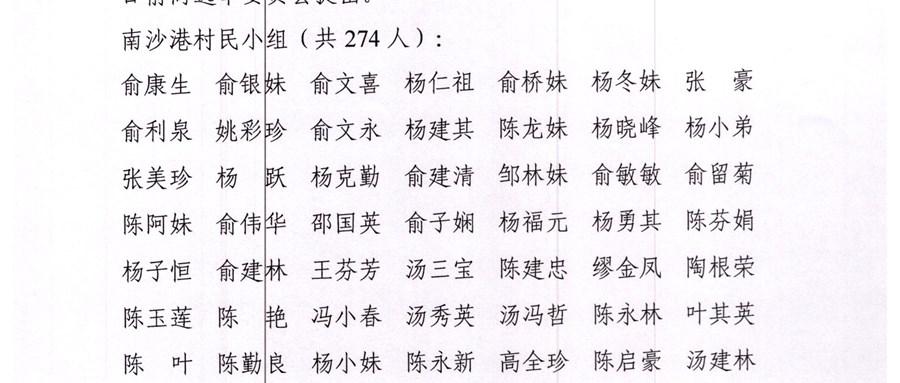 南沙港村民小组（共 274 人）：
俞康生 俞银妹 俞文喜 杨仁祖 俞桥妹 杨冬妹 张 豪
俞利泉 姚彩珍 俞文永 杨建其 陈龙妹 杨晓峰 杨小弟
张美珍 杨 跃 杨克勤 俞建清 邹林妹 俞敏敏 俞留菊
陈阿妹 俞伟华 邵国英 俞子娴 杨福元 杨勇其 陈芬娟
杨子恒 俞建林 王芬芳 汤三宝 陈建忠 缪金凤 陶根荣
陈玉莲 陈 艳 冯小春 汤秀英 汤冯哲 陈永林 叶其英
陈 叶 陈勤良 杨小妹 陈永新 高全珍 陈启豪 汤建林